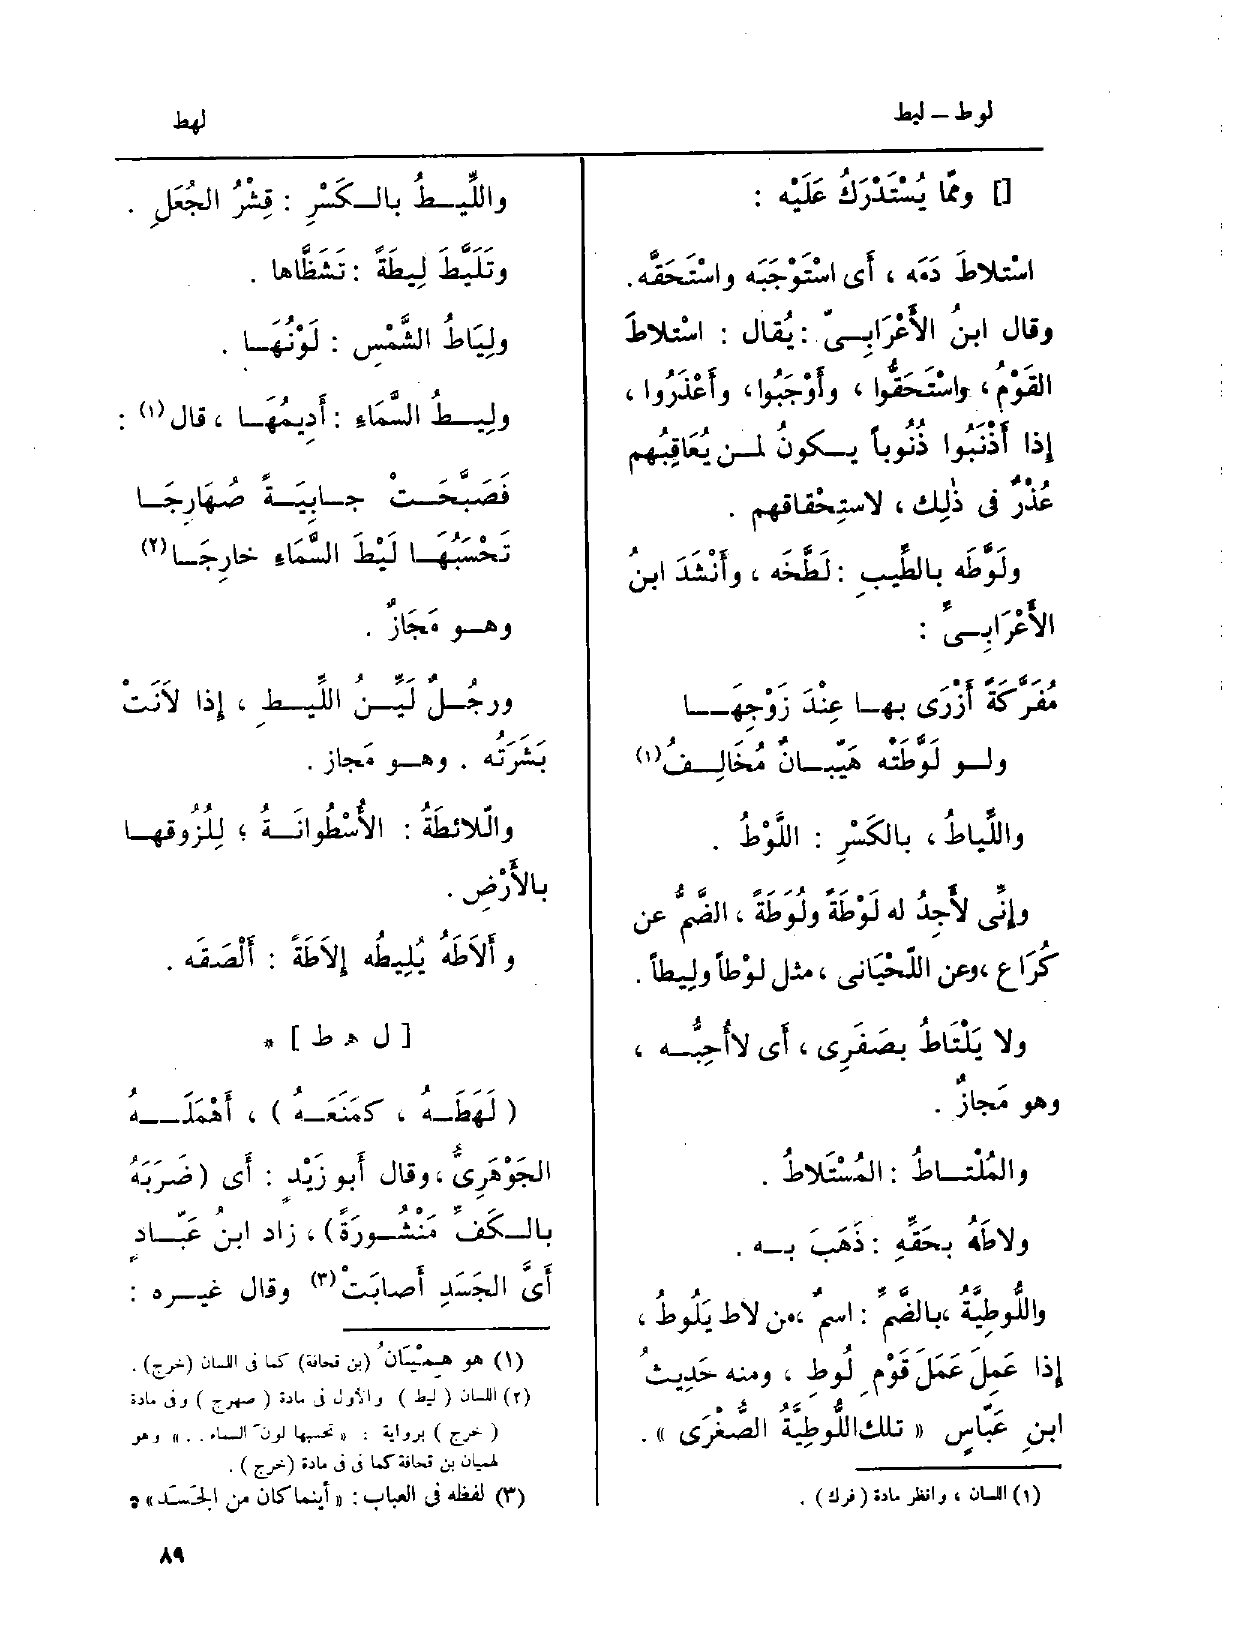 لوط – ليط
لهط
[] وممّا يُسْتَدْرَكُ عَلَيْه :
اسْتلاطَ دَمَه ، أَى اسْتَوْجَبَه واسْتَحَقَّه.
وقال ابنُ الأَعْرَابِىّ : يُقال : اسْتلاطَ
القَوْمُ، واسْتَحَقُّوا ، وأَوْجَبُوا، وأَعْذَرُوا ،
إذا أَذْنَبُوا ذُنُوباً يكونُ لمن يُعَاقِبُهم
عُذْرٌ فى ذٰلِك ، لاستِحْقاقهم .
ولَوَّطَه بالطِّيبِ : لَطَّخَه ، وأَنْشَدَ ابنُ
الأَعْرَابِىّ :
مُفَرَّكَةٌ أَزْرَى بها عِنْدَ زَوْجِهَا
ولو لَوَّطَتْه هَيِّبَانٌ مُخَالِفُ(١)
واللِّياطُ ، بالكَسْرِ : اللَّوْطُ .
وإِنِّى لأَجِدُ له لَوْطَةً ولُوَطَةً ، الضَّمُّ عن
كُرَاع ،وعن اللّحْيَانى ، مثل لوْطاً ولِيطاً .
ولا يَلْتَاطُ بصَفَرِى ، أَى لاأُحِبُّه ،
وهو مَجازٌ .
والمُلْتاطُ : المُسْتَلاطُ .
ولاطَهُ بحَقِّهِ : ذَهَبَ به .
واللُّوطِيَّةُ ،بالضَّمِّ : اسمٌ ،من لاط يَلُوطُ ،
إذا عَمِلَ عَمَلَ قَوْمِ لُوطٍ ، ومنه حَدِيثُ
ابنِ عَبّاسٍ « تلك اللُّوطِيَّةُ الصُّغْرَى » .
(١) اللسان ، وانظر مادة ( فرك ) .
واللِّيطُ بالكَسْرِ : قِشْرُ الجُعَلِ .
وتَلَيَّطَ لِيطَةً : تَشَظَّاها .
ولِيَاطُ الشَّمْسِ : لَوْنُهَا .
ولِيطُ السَّمَاءِ : أَدِيمُهَا ، قال(١) :
فَصَبَّحَتْ جابِيَةً صُهَارِجَا
تَحْسَبُهَا لَيْطَ السَّمَاءِ خارِجَا(٢)
وهو مَجَازٌ .
ورجُلٌ لَيِّنُ اللِّيطِ ، إذا لاَنَتْ
بَشَرَتُه . وهو مَجاز .
والّلائطَةُ : الأُسْطوانَةُ ؛ لِلُزُوقها
بالأَرْضِ .
وأَلاَطَهُ يُلِيطُه إِلاَطَةً : أَلْصَقَه .
[ ل ه‍ ط ] *
( لَهَطَهُ ، كمَنَعَهُ ) ، أَهْمَلَهُ
الجَوْهَرِىُّ ،وقال أَبو زَيْدٍ : أَى (ضَرَبَهُ
بالكَفِّ مَنْشُورَةً) ، زاد ابنُ عَبّادٍ
أَىَّ الجَسَدِ أَصابَتْ(٣) وقال غيره :
(١) هو هِمْيَان (بن قحافة) كما فى اللسان (خرج).
(٢) اللسان ( ليط ) والأول فى مادة ( صهرج ) وفى مادة
( خرج ) برواية : « تحسبها لونَ السماء . . » وهو
لهميان بن قحافة كما فى مادة (خرج ) .
(٣) لفظه فى العباب: « أينما كان من الجَسَد»
٨٩